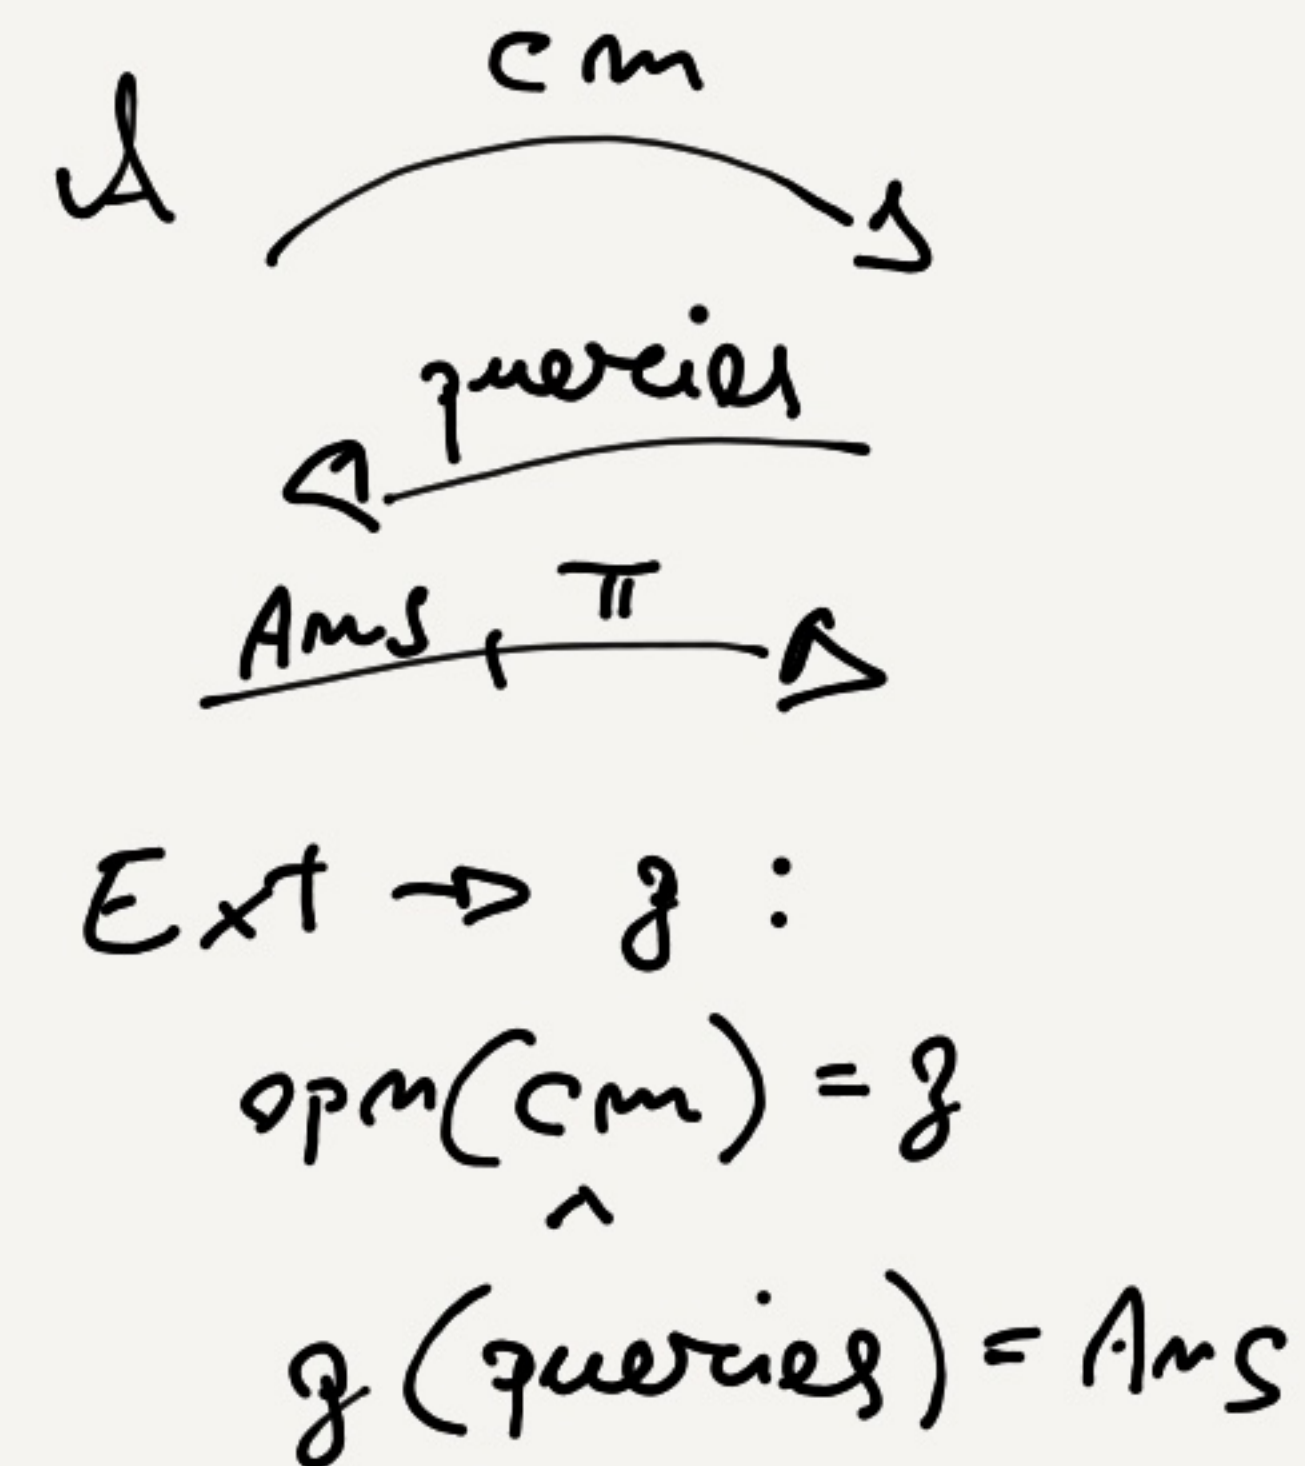 cm
A
queries
Ans, π
Ext → g :
opn(cm) = g
^
g(queries) = Ans